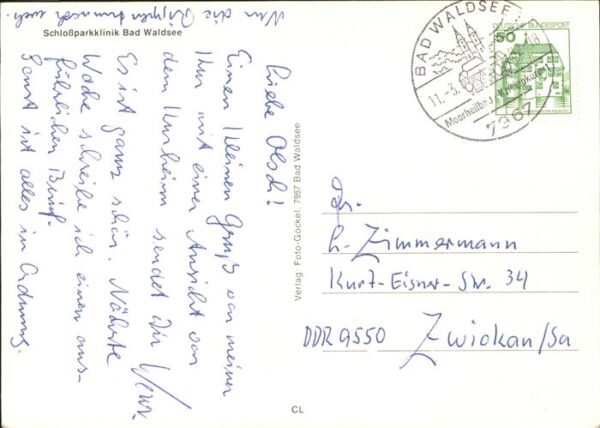 Schloßparkklinik Bad Waldsee
Liebe Olsch!
Einen kleinen Gruß von meiner
Kur mit einer Ansicht von
dem Kurheim sendet Dir
Es ist ganz schön. Nächste
Woche schreibe ich einen aus-
führlichen Brief.
Sonst ist alles in Ordnung.
Nur die Rippen noch
Verlag Foto-Göckel 7967 Bad Waldsee
CL
BAD WALDSEE
11.-3.
Moorheilbad Kneippkurort
7967
DEUTSCHE BUNDESPOST
50
Dr.
L. Zimmermann
Kurt-Eisner-Str. 34
DDR 9550 Zwickau/Sa